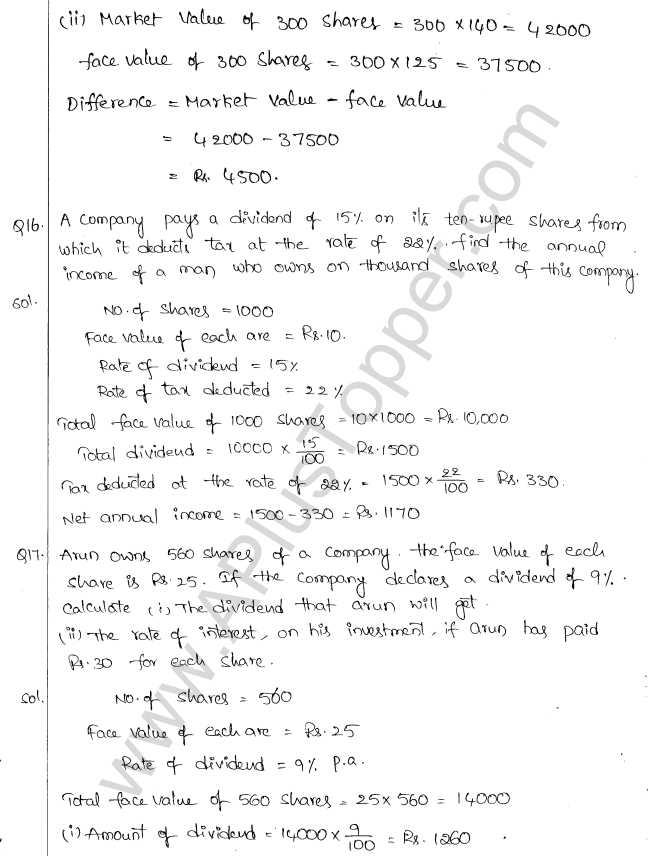 (ii) Market Value of 300 Shares = 300 × 140 = 42000
face value of 300 Shares = 300 × 125 = 37500.
Difference = Market Value - face value
= 42000 - 37500
= Rs. 4500.
Q16. A Company pays a dividend of 15% on its ten-rupee shares from
which it deducts tax at the rate of 22%. find the annual
income of a man who owns on thousand shares of this company.
Sol. No. of shares = 1000
Face value of each are = Rs.10.
Rate of dividend = 15%
Rate of tax deducted = 22%
Total face value of 1000 shares = 10×1000 = Rs.10,000
Total dividend = 10000 × 15/100 = Rs.1500
Tax deducted at the rate of 22% = 1500 × 22/100 = Rs. 330.
Net annual income = 1500 - 330 = Rs. 1170
Q17. Arun owns 560 shares of a Company. the face value of each
share is Rs.25. If the company declares a dividend of 9%.
Calculate (i) The dividend that arun will get.
(ii) The rate of interest, on his investment, if arun has paid
Rs.30 for each share.
Sol. No. of shares = 560
Face value of each are = Rs.25
Rate of dividend = 9% p.a.
Total face value of 560 shares = 25 × 560 = 14000
(i) Amount of dividend = 14000 × 9/100 = Rs. 1260.
www.APlusTopper.com